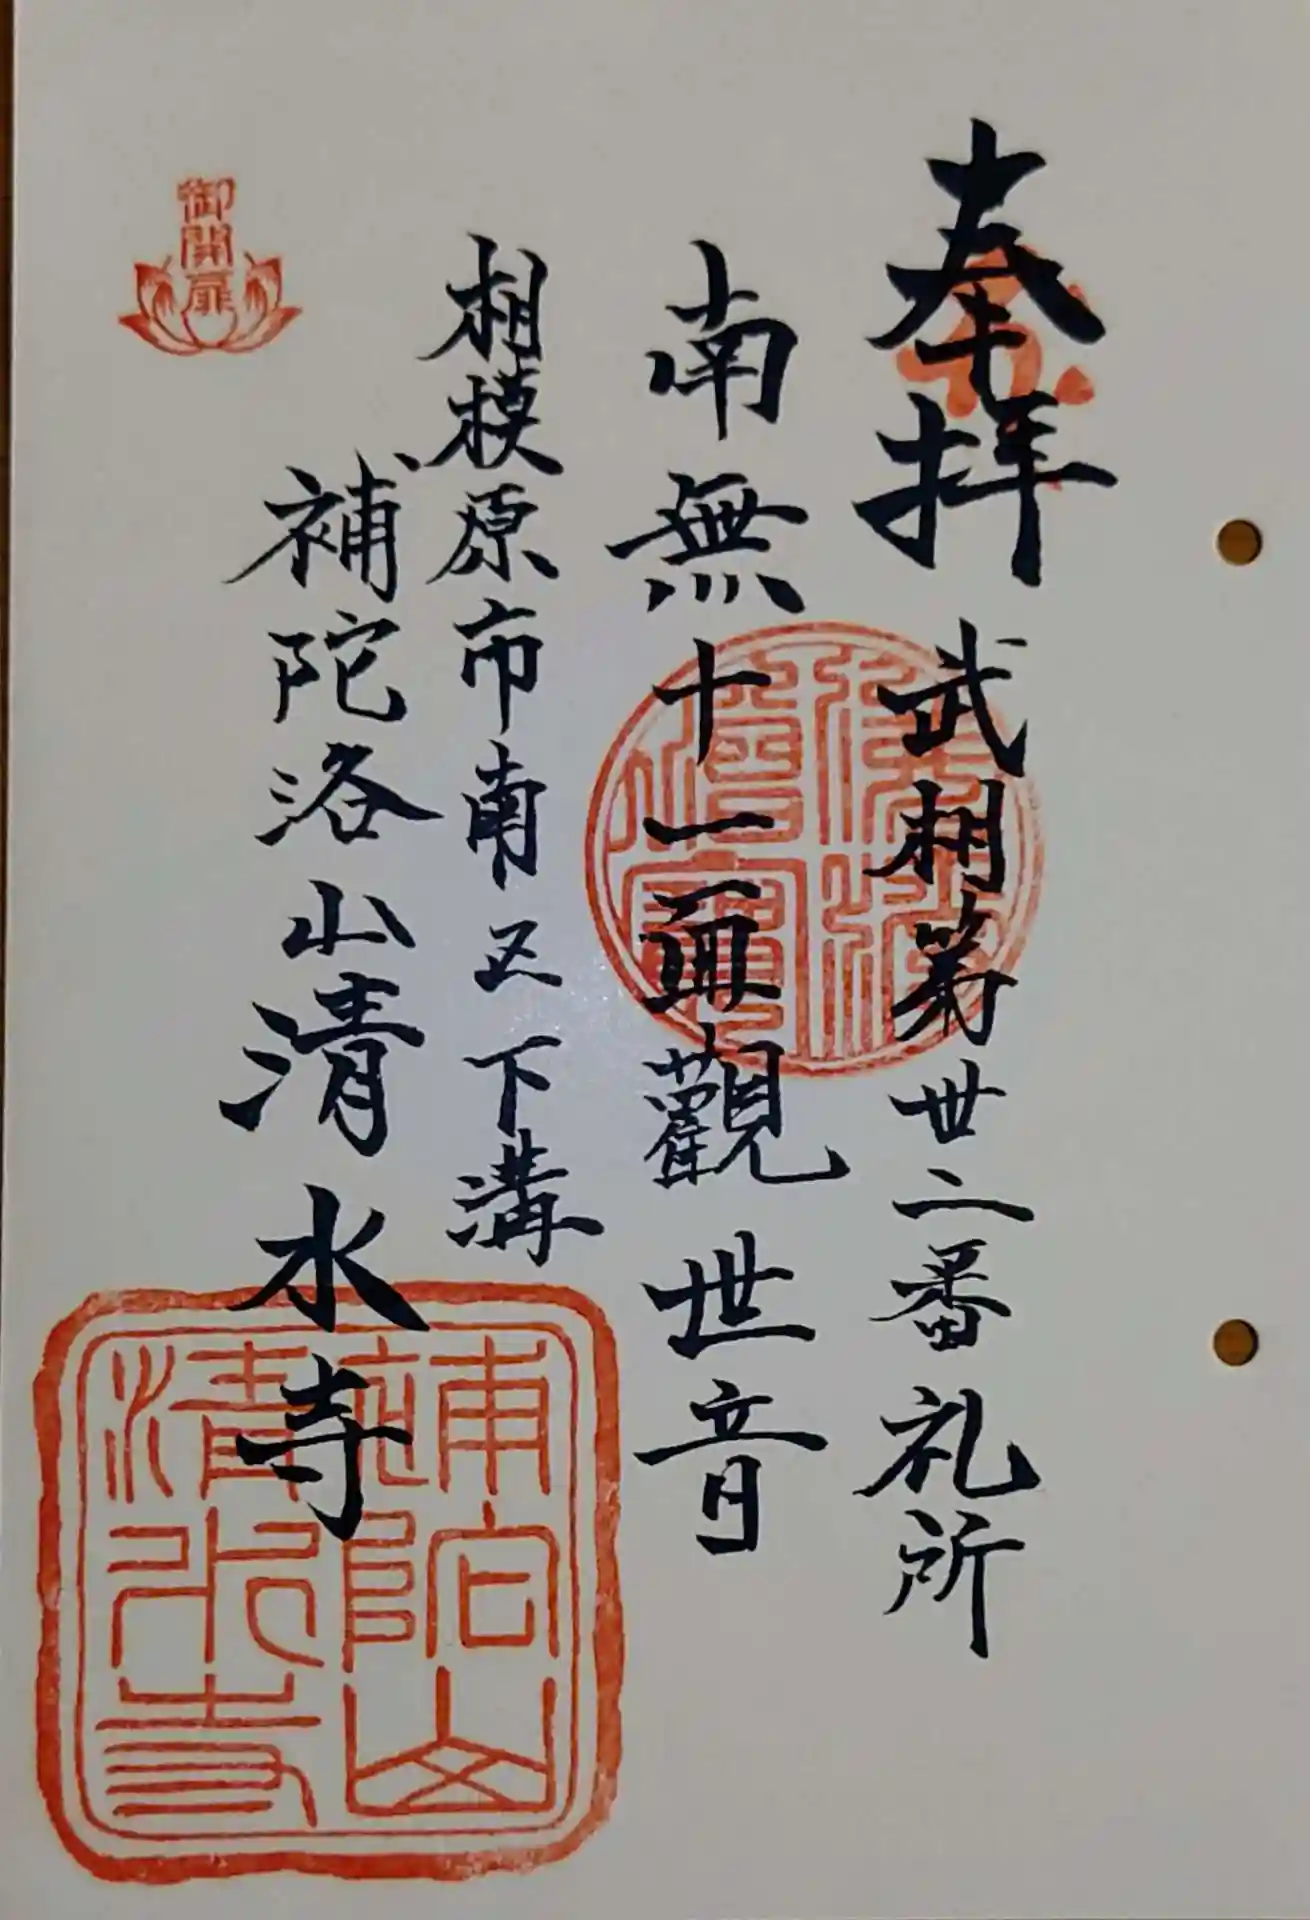 奉拝 武相第卅二番礼所
南無十一面觀世音
相模原市南区下溝
補陀洛山清水寺
御開扉
佛法僧寳
補陀山清水寺